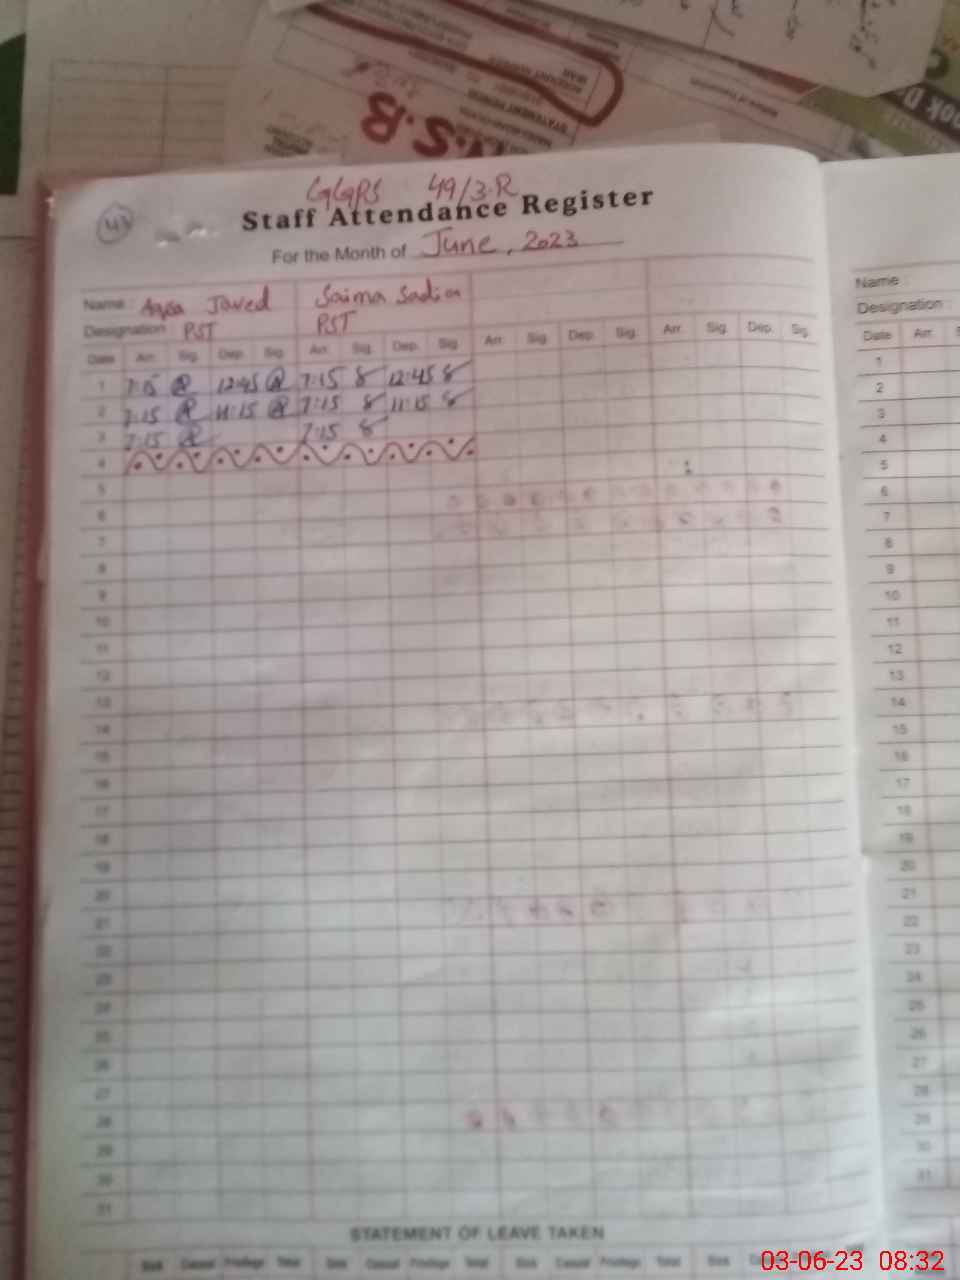 U.S.B
STATEMENT PERIOD
ACCOUNT NUMBER
IBAN
GGPS 49/3-R
43
Staff Attendance Register
For the Month of June, 2023
Name : Aqsa Javed Saima Sadia
Designation PST PST
Date Arr. Sig. Dep. Sig. Arr. Sig. Dep. Sig. Arr. Sig. Dep. Sig. Arr. Sig. Dep. Sig.
1 7:15 12:45 7:15 12:45
2 7:15 11:15 7:15 11:15
3 7:15 7:15
4
5
6
7
8
9
10
11
12
13
14
15
16
17
18
19
20
21
22
23
24
25
26
27
28
29
30
31
STATEMENT OF LEAVE TAKEN
Sick Casual Privilege Total Sick Casual Privilege Total Sick
Name
Designation
Date Arr.
1
2
3
4
5
6
7
8
9
10
11
12
13
14
15
16
17
18
19
20
21
22
23
24
25
26
27
28
29
30
31
03-06-23 08:32